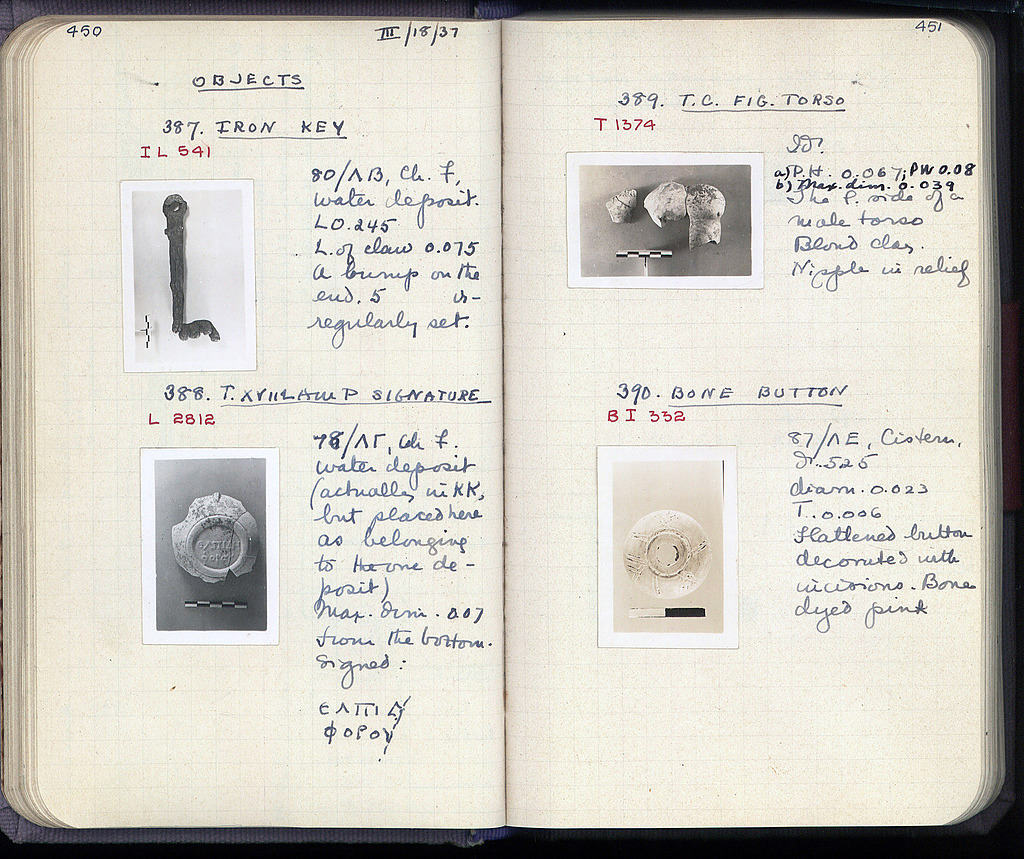 450
III/18/37
OBJECTS
387. IRON KEY
IL 541
80/ΛΒ, Ch. F,
water deposit.
L 0.245
L. of claw 0.075
A bump on the
end. 5 ir-
regularly set.
388. T. XVIII LAMP SIGNATURE
L 2812
78/ΛΓ, Ch F.
water deposit
(actually in KK,
but placed here
as belonging
to the one de-
posit)
Max. dim. 0.07
From the bottom.
Signed:
ΕΛΠΙΔ
ΦΟΡΟΥ
ΕΛΠΙΔΗ
ΦΟΡΟΥ
451
389. T.C. FIG. TORSO
T 1374
Id.
a) P.H. 0.067; PW 0.08
b) Max. dim. 0.039
The l. side of a
male torso
Blond clay.
Nipple in relief
390. BONE BUTTON
BI 332
87/ΛΕ, Cistern,
525
diam. 0.023
T. 0.006
Flattened button
decorated with
incisions. Bone
dyed pink